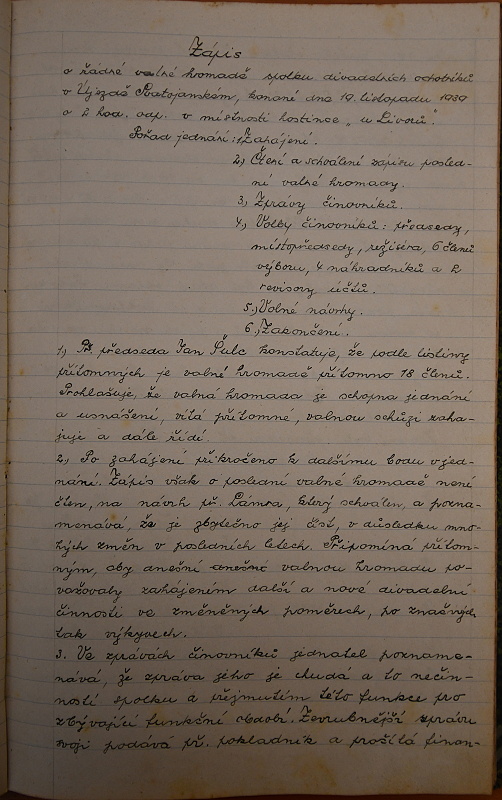 Zápis
o řádné valné hromadě spolku divadelních ochotníků
v Újezdě Svatojanském, konané dne 19. listopadu 1939
o 2 hod. odp. v místnosti hostince „u Livorů“.
Pořad jednání: 1, Zahájení.
2, Čtení a schválení zápisu posled-
ní valné hromady.
3, Zprávy činovníků.
4, Volby činovníků: předsedy,
místopředsedy, režiséra, 6 členů
výboru, 4 náhradníků a 2
revisory účtů.
5, Volné návrhy.
6, Zakončení.
1, Př. předseda Jan Šulc konstatuje, že podle listiny
přítomných je valné hromadě přítomno 18 členů.
Prohlašuje, že valná hromada je schopna jednání
a usnášení, vítá přítomné, valnou schůzi zaha-
juje a dále řídí.
2, Po zahájení přikročeno k dalšímu bodu v jed-
nání. Zápis však o poslední valné hromadě není
čten, na návrh př. Lámra, který schválen, a pozna-
menává, že je zbytečno jej číst, v důsledku mno-
hých změn v posledních letech. Připomíná přítom-
ným, aby dnešní dnešné valnou hromadu po-
važovaly zahájením další a nové divadelní
činnosti ve změněných poměrech, po značných
tak výkyvech.
3. Ve zprávách činovníků jednatel pozname-
nává, že zpráva jeho je chudá a to nečin-
ností spolku a přejmutím této funkce pro
zbývající funkční období. Zevrubnější zprávu
svoji podává př. pokladník a prošílá finan-